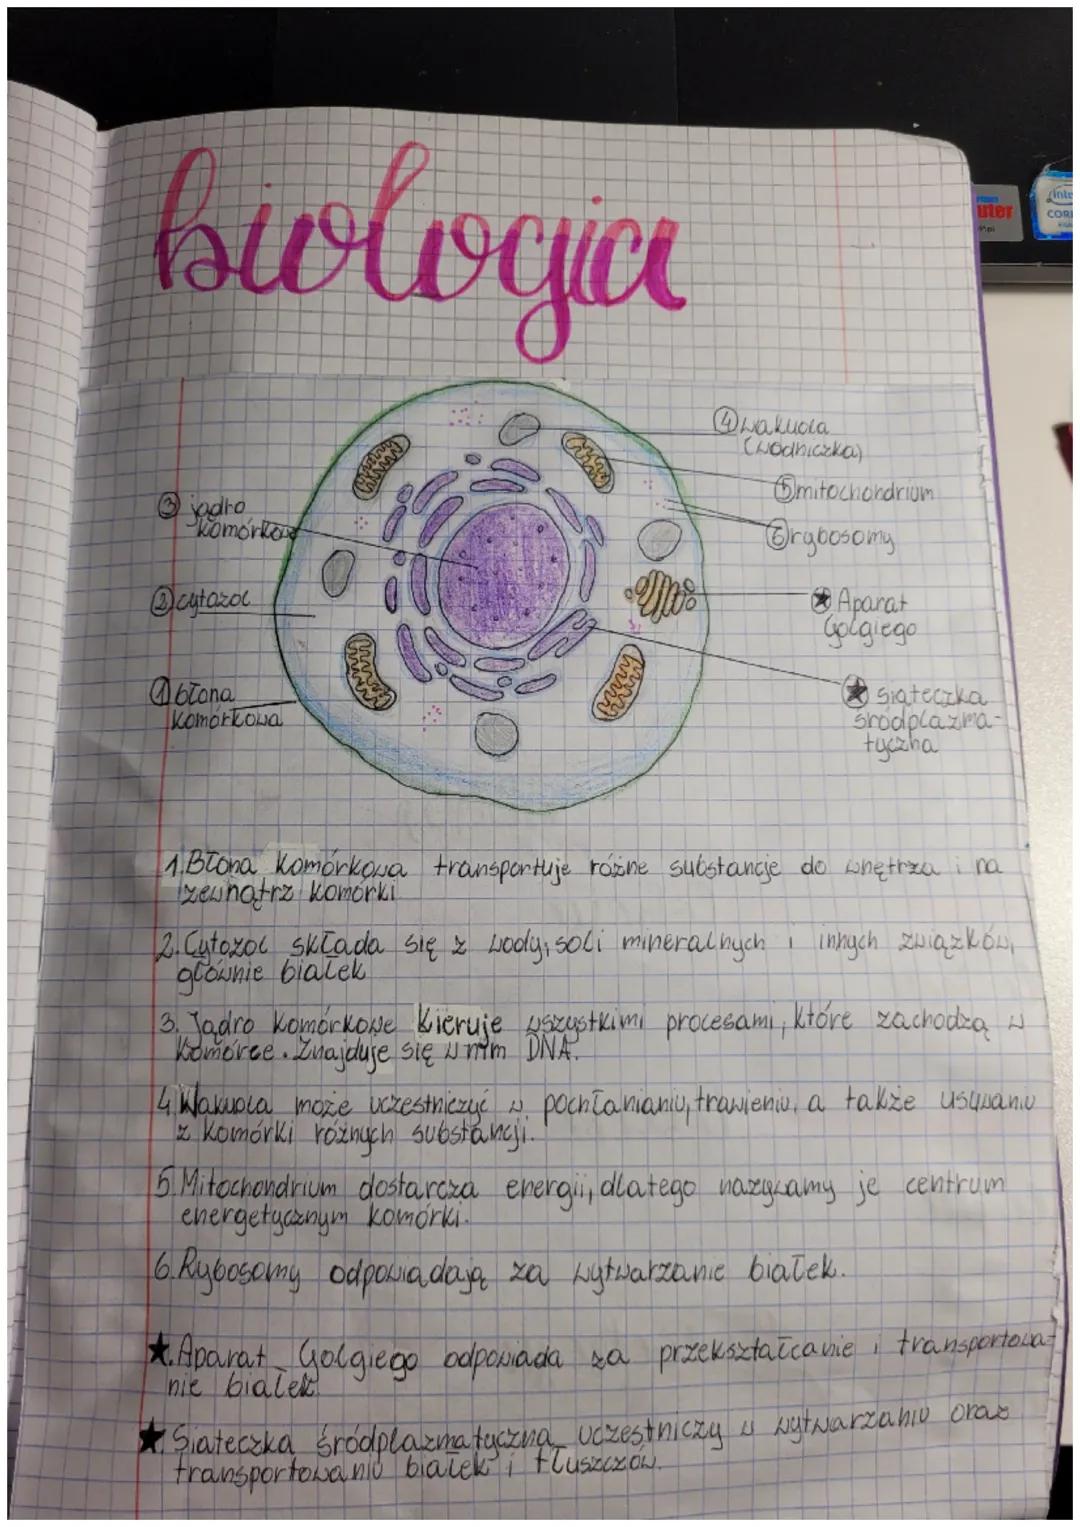 biologia
④ wakuola
(wodniczka)
⑤ mitochondrium
③ jądro
komórkowe
⑥ rybosomy
② cytozol
★ Aparat
Golgiego
① błona
komórkowa
★ siateczka
śródplazma-
tyczna
1. Błona komórkowa transportuje różne substancje do wnętrza i na
zewnątrz komórki
2. Cytozol składa się z wody, soli mineralnych i innych związków,
głównie białek
3. Jądro komórkowe kieruje wszystkimi procesami, które zachodzą w
komórce. Znajduje się w nim DNA.
4. Wakuola może uczestniczyć w pochłanianiu, trawieniu, a także usuwaniu
z komórki różnych substancji.
5. Mitochondrium dostarcza energii, dlatego nazywamy je centrum
energetycznym komórki.
6. Rybosomy odpowiadają za wytwarzanie białek.
★. Aparat Golgiego odpowiada za przekształcanie i transportowa-
nie białek
★. Siateczka śródplazmatyczna uczestniczy w wytwarzaniu oraz
transportowaniu białek i tłuszczów.